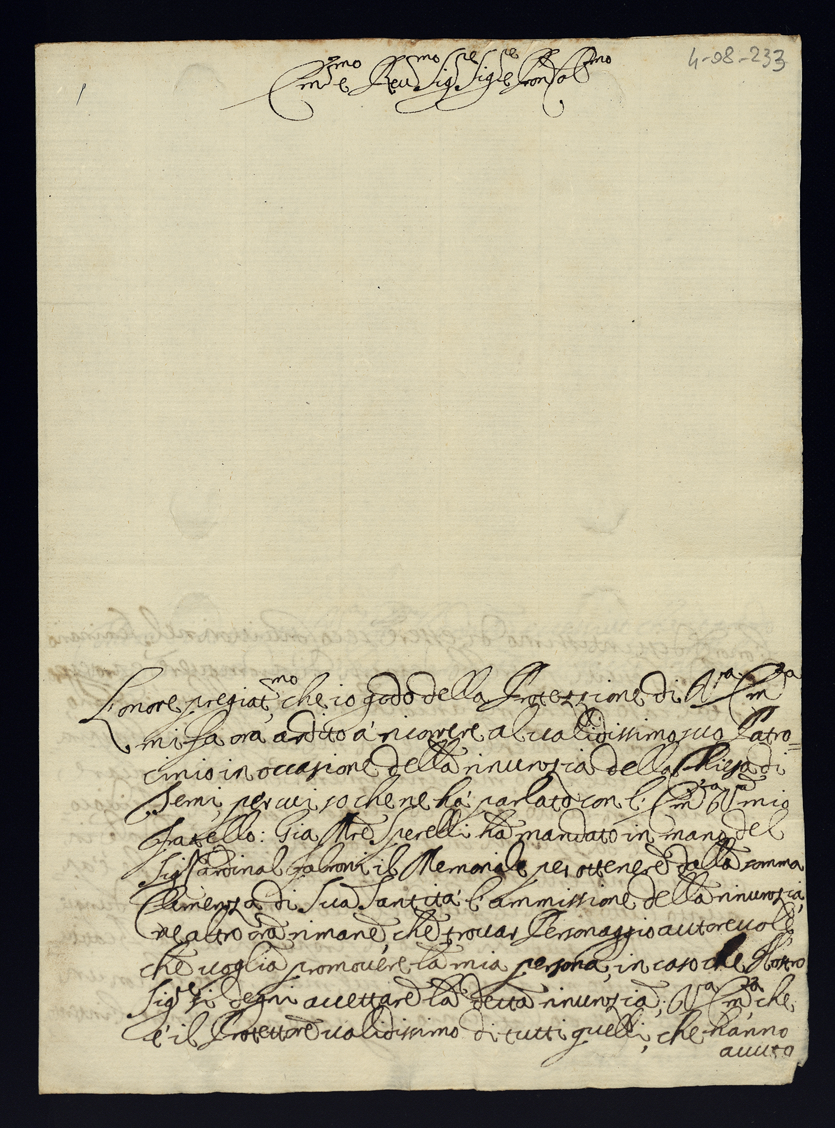 4-08-233
Em.mo e Reu.mo Sig.re Sig.re e Pron Col.mo
L'onore pregiat.mo che io godo della Protezzione di V.ra Em.za
mi fa ora ardito a' ricorrere al ualidissimo suo Patro=
cinio in occasione della rinunzia della Chiesa di
per cui so che ne ha' parlato con l' Em.za V.ra mio
fratello: Gia Mre Sperelli ha mandato in mano del
Sig.r Cardinal Fabroni il Memoriale per ottenere dalla somma
Clemenza di Sua Santità l'ammissione della rinunzia,
ne altro ora rimane, che trouar Personaggio autoreuole
che uoglia promouere la mia persona, in caso che Nostro
Sig.re si degni accettare la detta rinunzia; V.ra Em.za che
e' il Protettore ualidissimo di tutti quelli, che hanno
auuto